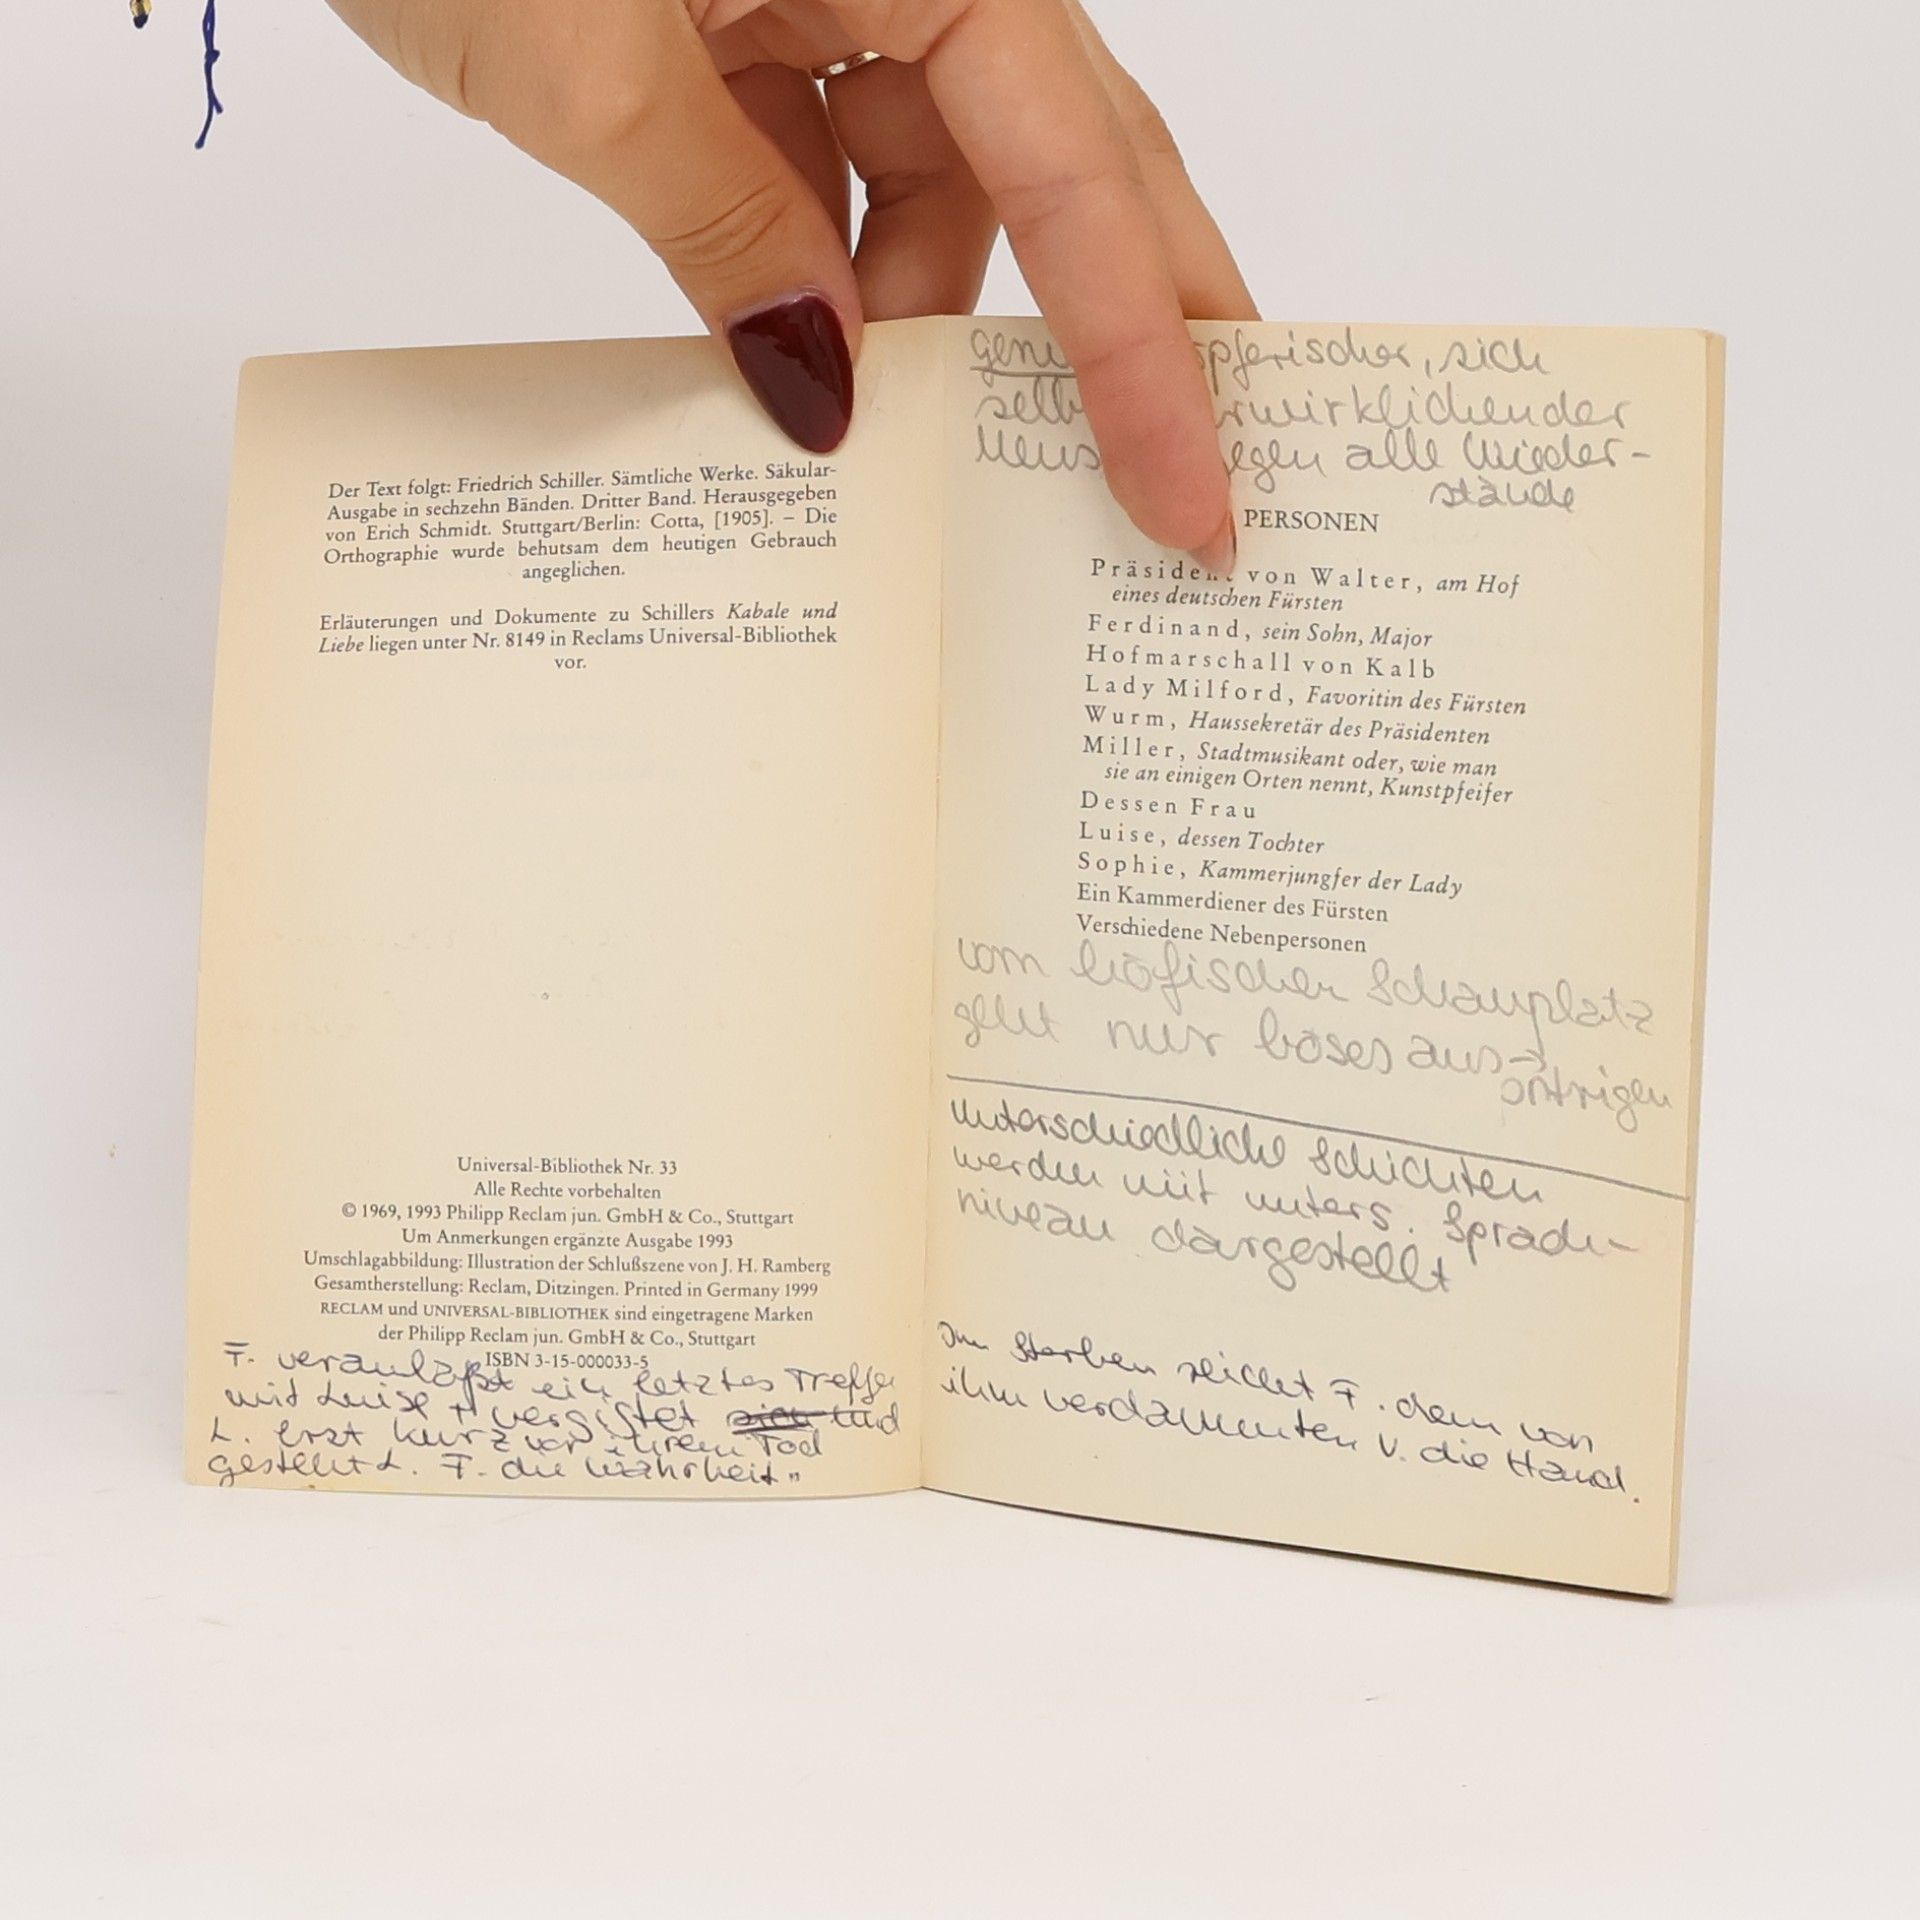 Der Text folgt: Friedrich Schiller. Sämtliche Werke. Säkular-
Ausgabe in sechzehn Bänden. Dritter Band. Herausgegeben
von Erich Schmidt. Stuttgart/Berlin: Cotta, [1905]. – Die
Orthographie wurde behutsam dem heutigen Gebrauch
angeglichen.
Erläuterungen und Dokumente zu Schillers Kabale und
Liebe liegen unter Nr. 8149 in Reclams Universal-Bibliothek
vor.
Universal-Bibliothek Nr. 33
Alle Rechte vorbehalten
© 1969, 1993 Philipp Reclam jun. GmbH & Co., Stuttgart
Um Anmerkungen ergänzte Ausgabe 1993
Umschlagabbildung: Illustration der Schlußszene von J. H. Ramberg
Gesamtherstellung: Reclam, Ditzingen. Printed in Germany 1999
RECLAM und UNIVERSAL-BIBLIOTHEK sind eingetragene Marken
der Philipp Reclam jun. GmbH & Co., Stuttgart
ISBN 3-15-000033-5
F. veranlaßt ein letztes Treffen
mit Luise + vergiftet und
L. erst kurz vor ihrem Tod
gesteht L. F. die Wahrheit"
sich
alle Wieder-
stände
PERSONEN
Präsident von Walter, am Hof
eines deutschen Fürsten
Ferdinand, sein Sohn, Major
Hofmarschall von Kalb
Lady Milford, Favoritin des Fürsten
Wurm, Haussekretär des Präsidenten
Miller, Stadtmusikant oder, wie man
sie an einigen Orten nennt, Kunstpfeifer
Dessen Frau
Luise, dessen Tochter
Sophie, Kammerjungfer der Lady
Ein Kammerdiener des Fürsten
Verschiedene Nebenpersonen
vom höfischen Schauplatz
geht nur böses aus →
Intrigen
unterschiedliche Schichten
werden mit unters. Sprach-
niveau dargestellt
Im Sterben reicht F. dem von
ihm verdammten V. die Hand.